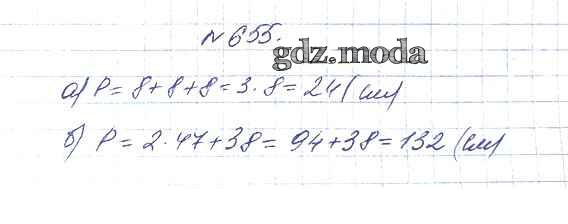 №655.
gdz.moda
а) P = 8+8+8 = 3·8 = 24 (см)
б) P = 2·47+38 = 94+38 = 132 (см)